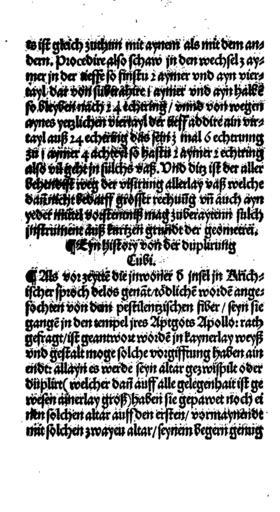 es ist gleich zuthun mit aynem als mit dem an-
dern. Procedire also schaw in den wechsel z ay-
mer in der tieffe so finstu 2 aymer vnd ayn vier-
tayl dar von subtrahire 1 aymer vnd ayn halbẽ
so bleyben nach 24 echtering / vnnd von wegen
aynes yetzlichen viertayl der tieff addire ain vir-
tayl auß 24 echtering das sein 3 mal 6 echterinng
zu 1 aymer 4 achteyl so hastu 2 aymer 2 echtering
also vil geht in sulchs vaß. Vnd ditz ist der aller
behendist weg der visirung allerlay vaß welche
dañ nicht bedarff grosser rechnũg vñ auch ayn
yeder mitel vorstentniß mag zuberaytenn sulch
instrument auß kurtzen grundt der geometrei.
¶ Eyn history von der duplirung
Cubi.
¶ Als vor zeyttẽ die inwoner d insel in Krich-
ischer sproch delos genãt / tödlichẽ wordẽ ange-
fochten von dem pestilentzischen fiber / seyn sie
gangẽ in den tempel jres Aptgots Apollo: rath
gefragt / ist geantwort wordẽ in kaynerlay weyß
vnd gestalt moge solche vorgifftung haben ain
endt: allayn es werde seyn altar gezwispilt oder
duplirt ( welcher dañ auff alle gelegenhait ist ge
wesen ainerlay groß ) haben sie gepawet noch ei
nen solchen altar auff den ersten / vormaynende
mit solchen zwayen altar / seynem begern genug